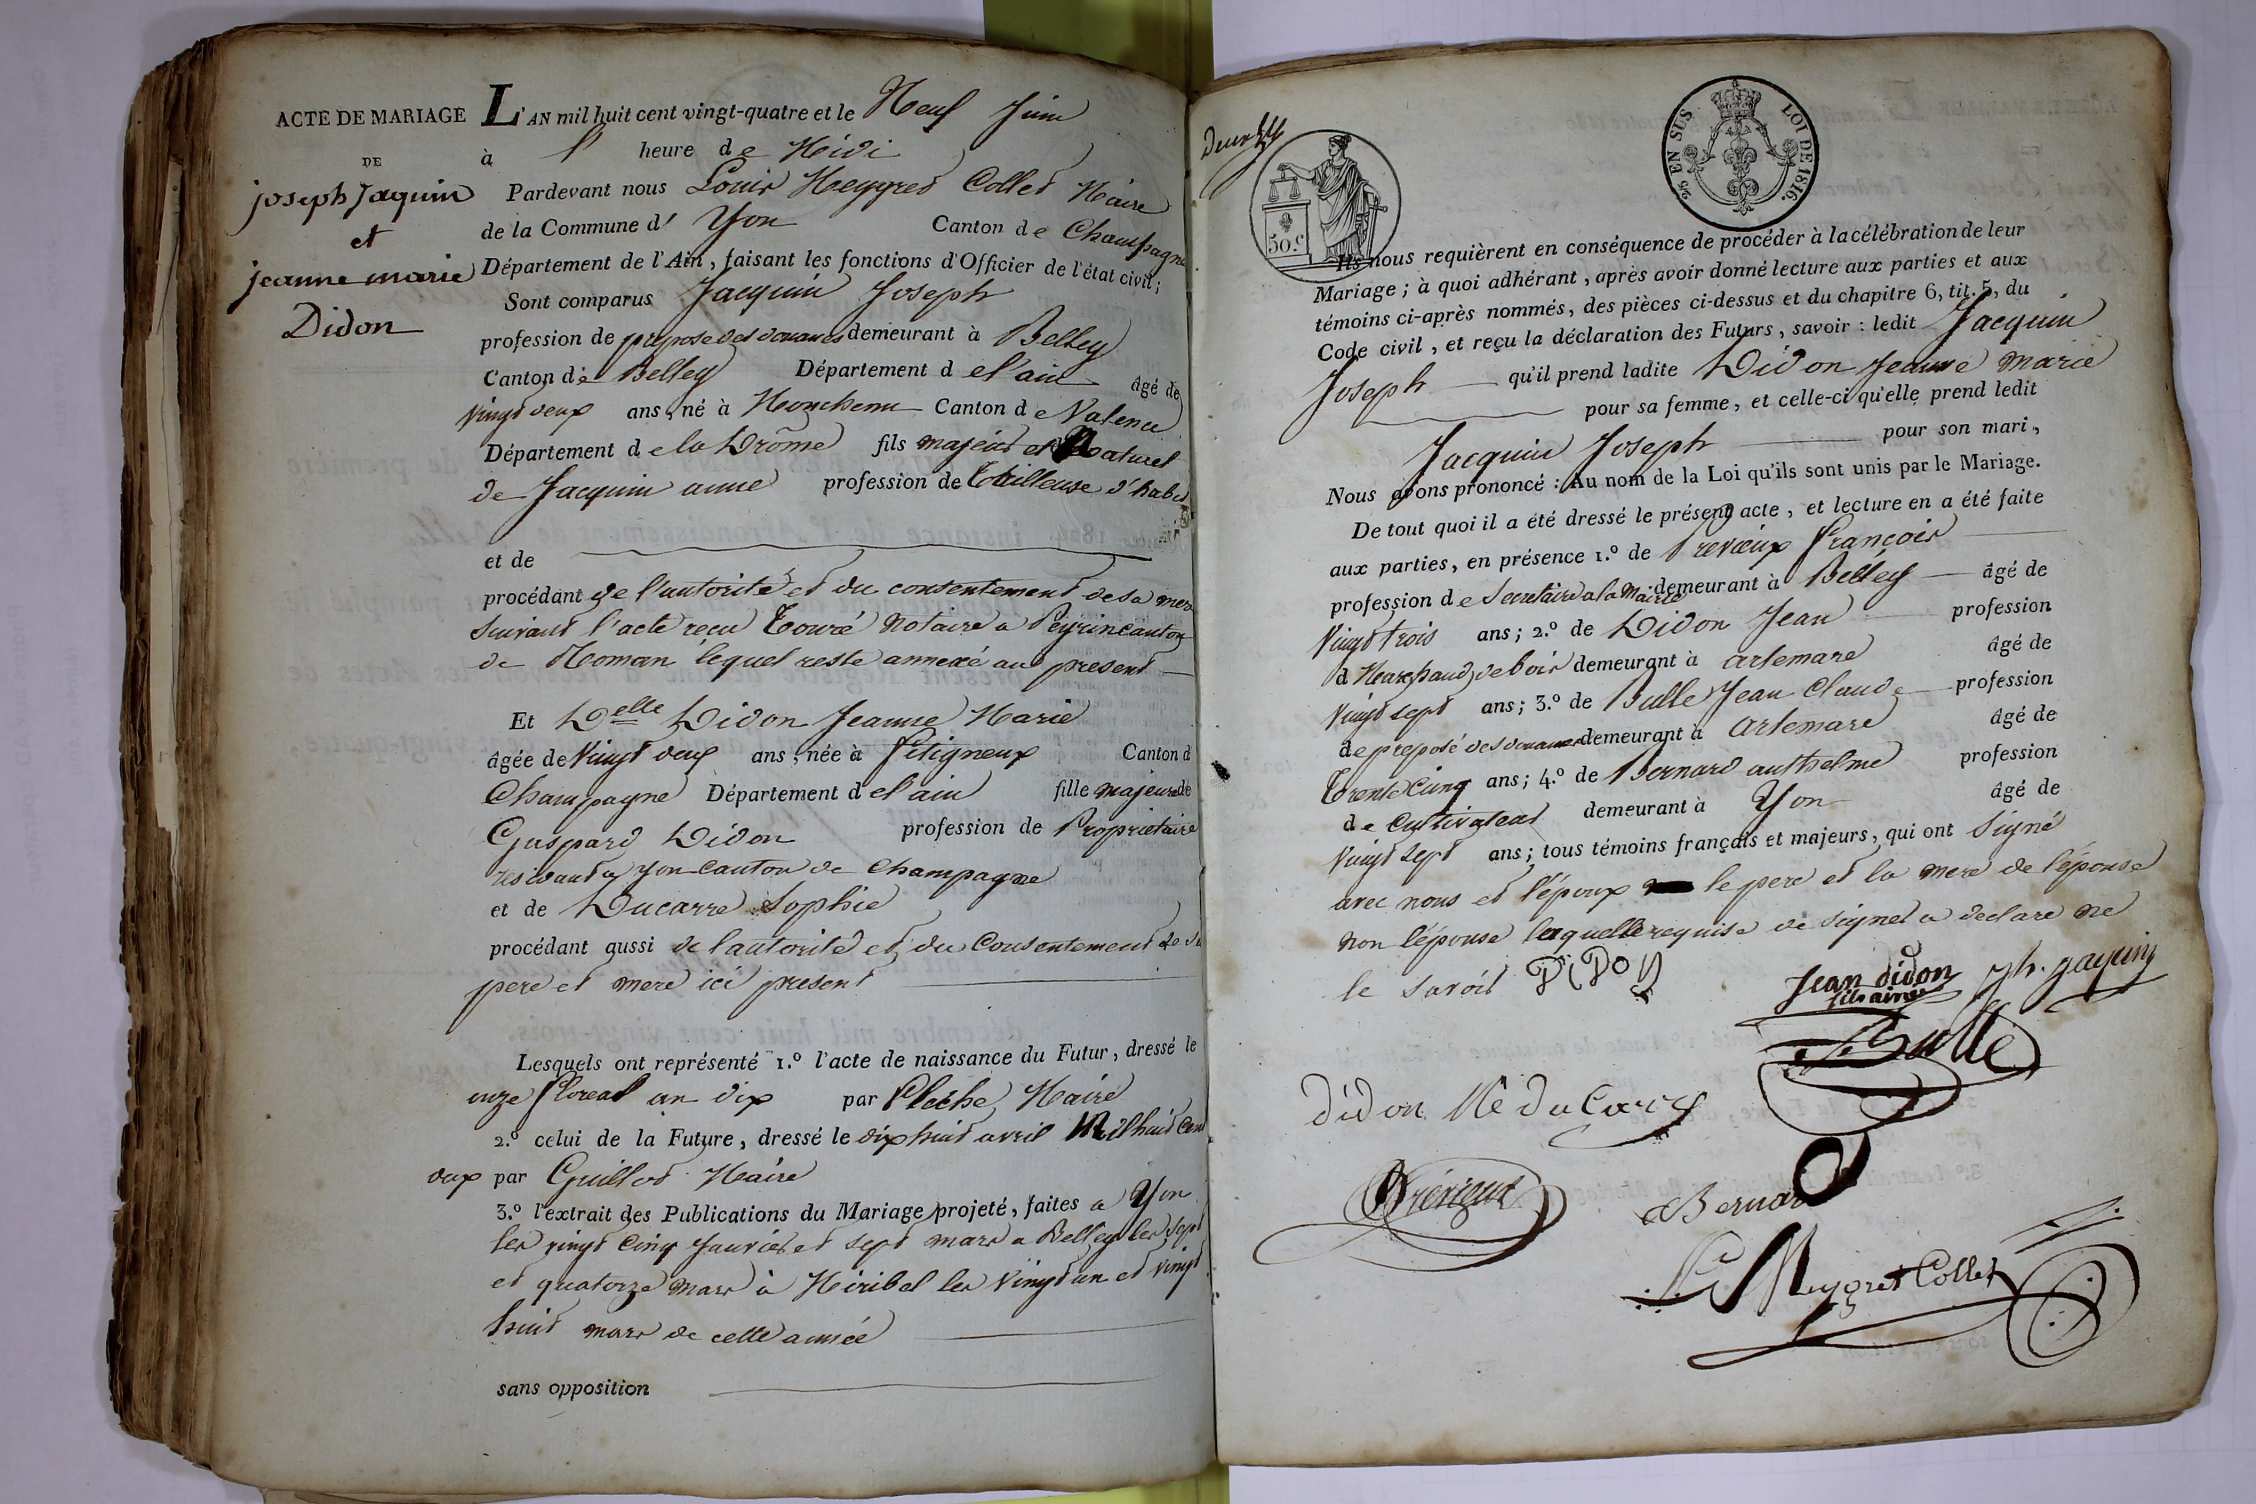 ACTE DE MARIAGE
DE
joseph Jaquin
et
jeanne marie
Didon
L'AN mil huit cent vingt-quatre et le Neuf Juin
à l' heure de Midi
Pardevant nous Louis Meygret Collet Maire
de la Commune d' Yon Canton de Champagne
Département de l'Ain, faisant les fonctions d'Officier de l'état civil;
Sont comparus Jacquin Joseph
profession de preposé des douanes demeurant à Belley
Canton de Belley Département d el'ain âgé de
vingt deux ans, né à Canton de Valence
Département de la Drôme fils majeur et Naturel
de Jacquin anne profession de tailleuse d'habit
et de
procédant de l'autorité et du consentement de sa mere
suivant l'acte reçu notaire a Peyrin canton
de Roman lequel reste annexé au present
Et Delle Didon Jeanne Marie
âgée de Vingt deux ans, née à Petigneux Canton d
Champagne Département d el'ain fille majeure de
Gaspard Didon profession de Propriétaire
residant a yon canton de Champagne
et de Ducarre Sophie
procédant aussi de l'autorité et du Consentement de se
pere et mere ici present
Lesquels ont représenté 1.º l'acte de naissance du Futur, dressé le
onze floreal an dix par Maire
2.º celui de la Future, dressé le dix huit avril Mil huit Cent
deux par Guillot Maire
3.º l'extrait des Publications du Mariage projeté, faites a Yon
les vingt cinq Janvier et sept mars a Belley les sept
et quatorze mars à Miribel les vingt un et vingt
huit mars de cette année
sans opposition
50.c
25 EN SUS LOI DE 1816.
Ils nous requièrent en conséquence de procéder à la célébration de leur
Mariage; à quoi adhérant, après avoir donné lecture aux parties et aux
témoins ci-après nommés, des pièces ci-dessus et du chapitre 6, tit. 5, du
Code civil, et reçu la déclaration des Futurs, savoir: ledit Jacquin
Joseph qu'il prend ladite Didon Jeanne Marie
pour sa femme, et celle-ci qu'elle prend ledit
Jacquin Joseph pour son mari,
Nous avons prononcé: Au nom de la Loi qu'ils sont unis par le Mariage.
De tout quoi il a été dressé le présent acte, et lecture en a été faite
aux parties, en présence 1.º de Previeux François
profession de Secretaire a la Mairie demeurant à Belley âgé de
Vingt trois ans; 2.º de Didon Jean profession
d Marchand de bois demeurant à artemare âgé de
Vingt sept ans; 3.º de Bulle Jean Claude profession
de preposé des douanes demeurant à artemare âgé de
Trente Cinq ans; 4.º de Bernard anthelme profession
de Cultivateur demeurant à Yon âgé de
Vingt sept ans; tous témoins français et majeurs, qui ont Signé
avec nous et l'époux le pere et la mere de l'épouse
non l'épouse laquelle requise de signer a declaré ne
le savoir DIDON
Jean didon
fils ainé
jh. jaquin
Bulle
didon Né duCarre
Prévieux
Bernard
L. Meygret Collet